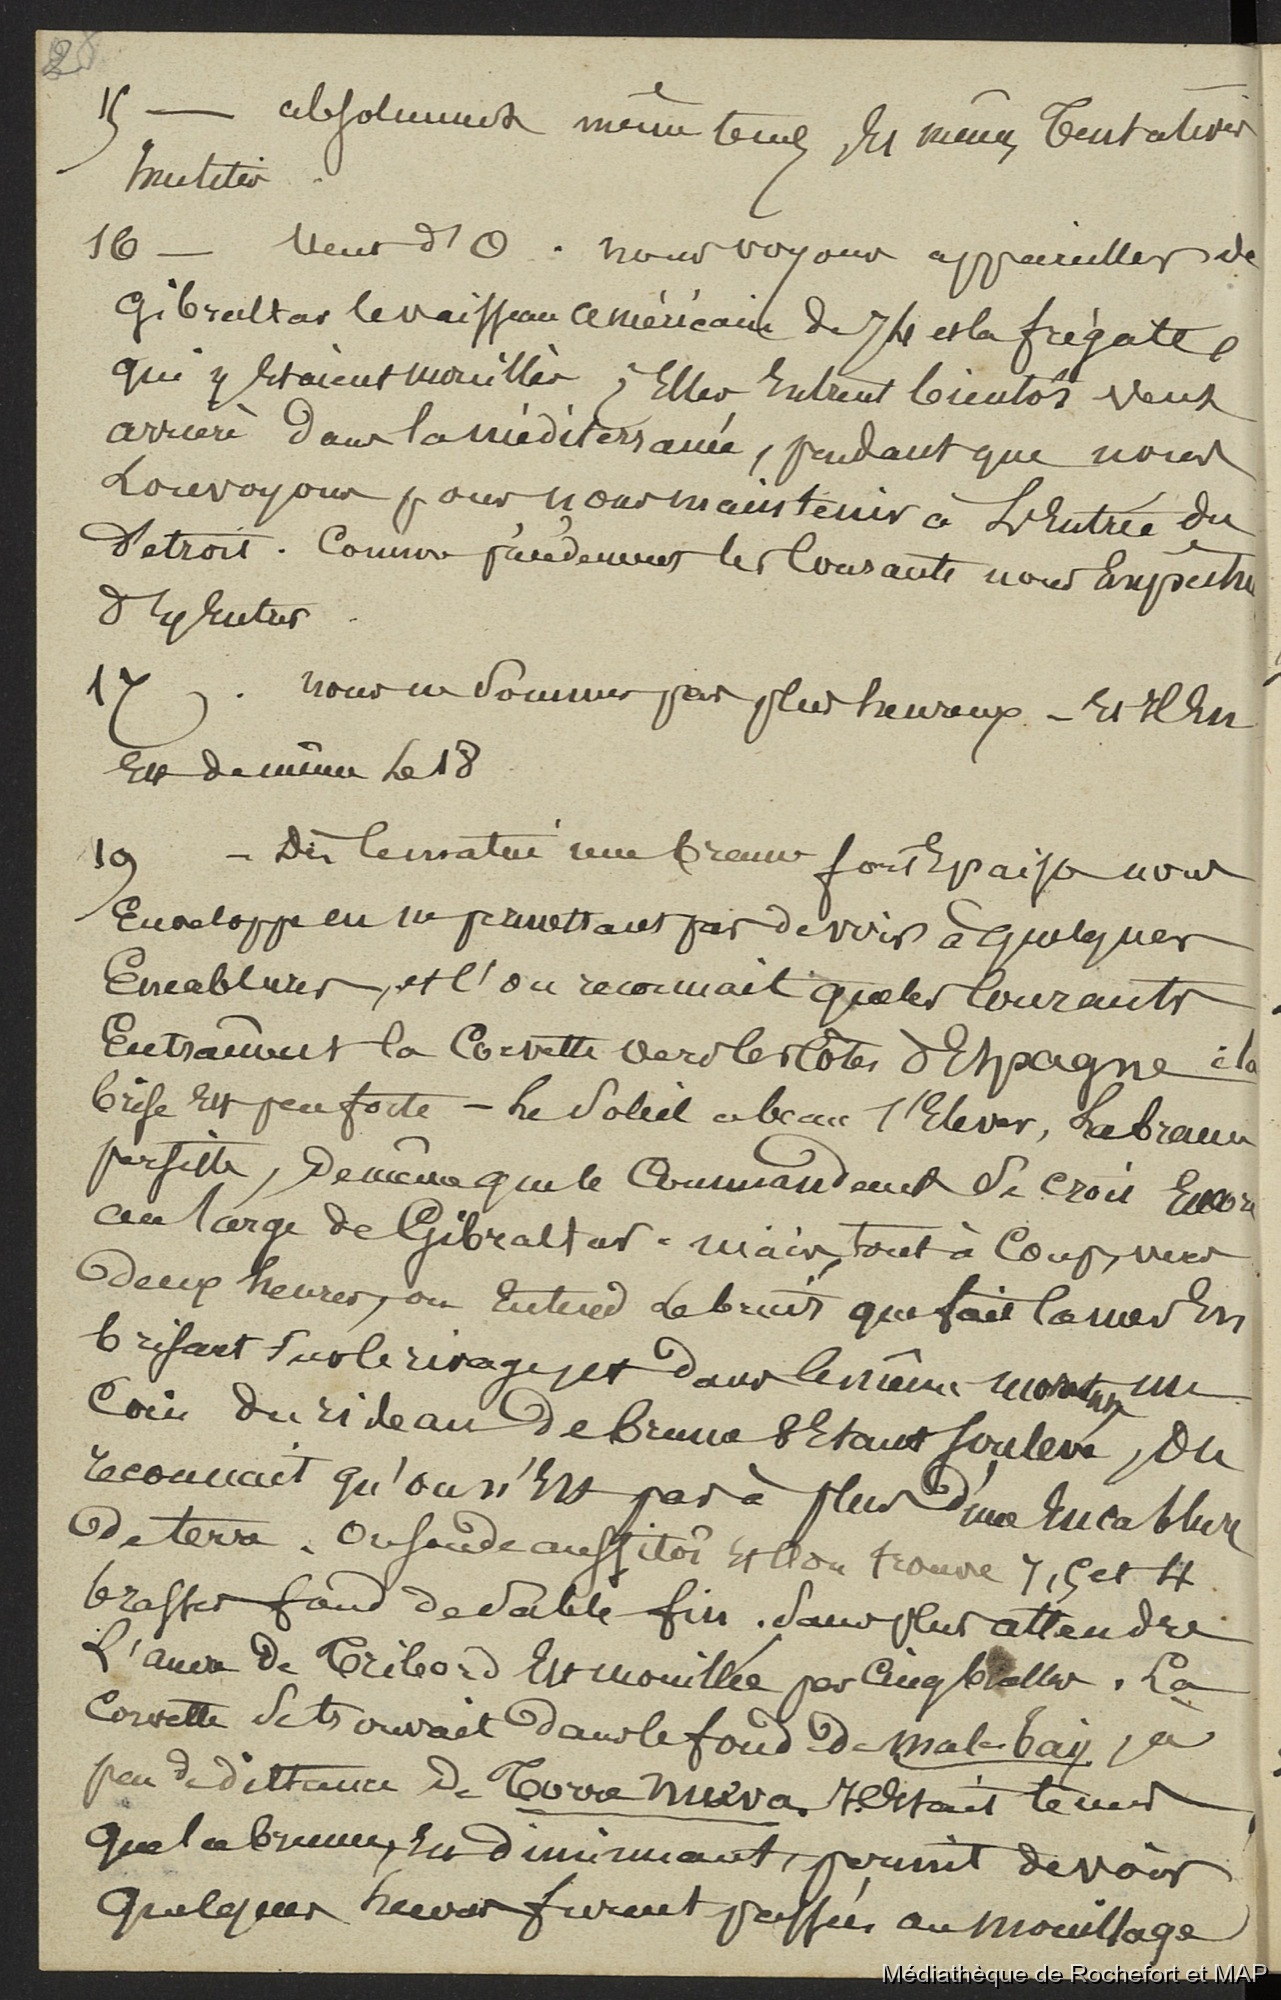 28
15 — absolument même temps et mêmes tentatives
inutiles.
16 — Vent d'O. nous voyons appareiller de
Gibraltar le vaisseau américain de 74 et la frégate,
qui y étaient mouillés ; Elles Entrent bientôt vent
arrière dans la méditerranée, pendant que nous
Louvoyons pour nous maintenir à L'Entrée du
Détroit. Comme précédemment les Courants nous Empêche
d'y Entrer.
17. nous ne sommes pas plus heureux – Et Il En
Est de même Le 18
19 – Dès le matin une brume fort Epaisse nous
Enveloppe en ne permettant pas de voir à quelques
Encablures, et l'on reconnait que les Courants
Entrainent la Corvette vers les côtes d'Espagne ; la
brise Est peu forte – Le Soleil a beau s'Elever, La brume
persiste, De même que le Commandant se croit Encore
au large de Gibraltar. mais, tout à Coup, vers
deux heures, on Entend Le bruit que fait la mer En
brisant sur le rivage, et dans le même moment, un
Coin du rideau de brume s'Etant soulevé, On
reconnait qu'on n'Est pas à plus d'une Encablure
de terre. On sonde aussitôt Et l'on trouve 7, 5 et 4
brasses fond de sable fin. Sans plus attendre
L'ancre de Tribord Est mouillée par Cinq brasses. La
Corvette se trouvait dans le fond de mala bay, à
peu de distance de Torre nueva. Il Etait temps
que la brume, En diminuant, permit de voir
quelques heures furent passées au mouillage
Médiathèque de Rochefort et MAP